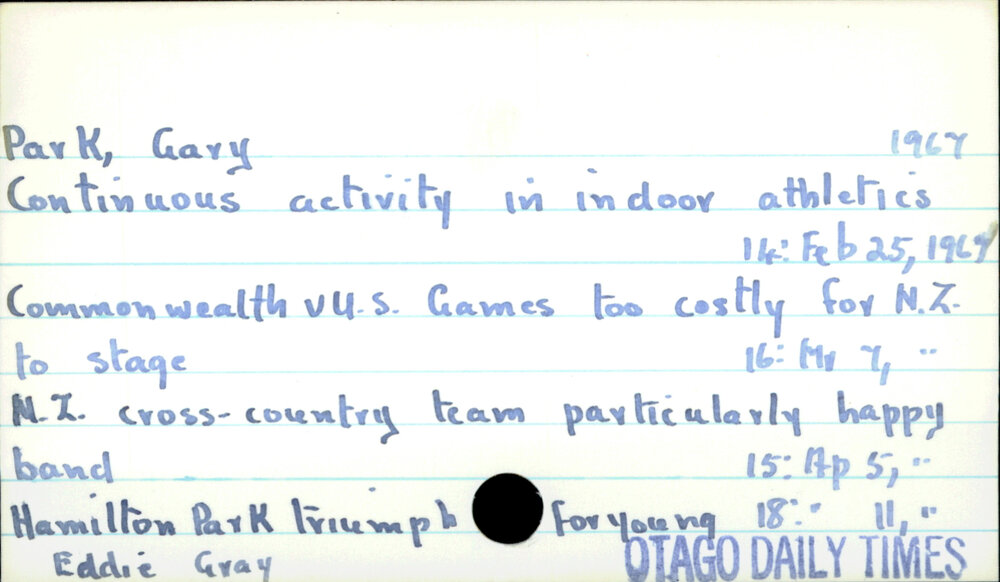 Park, Gary 1967
Continuous activity in indoor athletics
14: Feb 25, 1967
Commonwealth v U.S. Games too costly for N.Z.
to stage 16: Mr 7, "
N.Z. cross-country team particularly happy
band 15: Ap 5, "
Hamilton Park triumph for young 18: " 11, "
Eddie Gray OTAGO DAILY TIMES